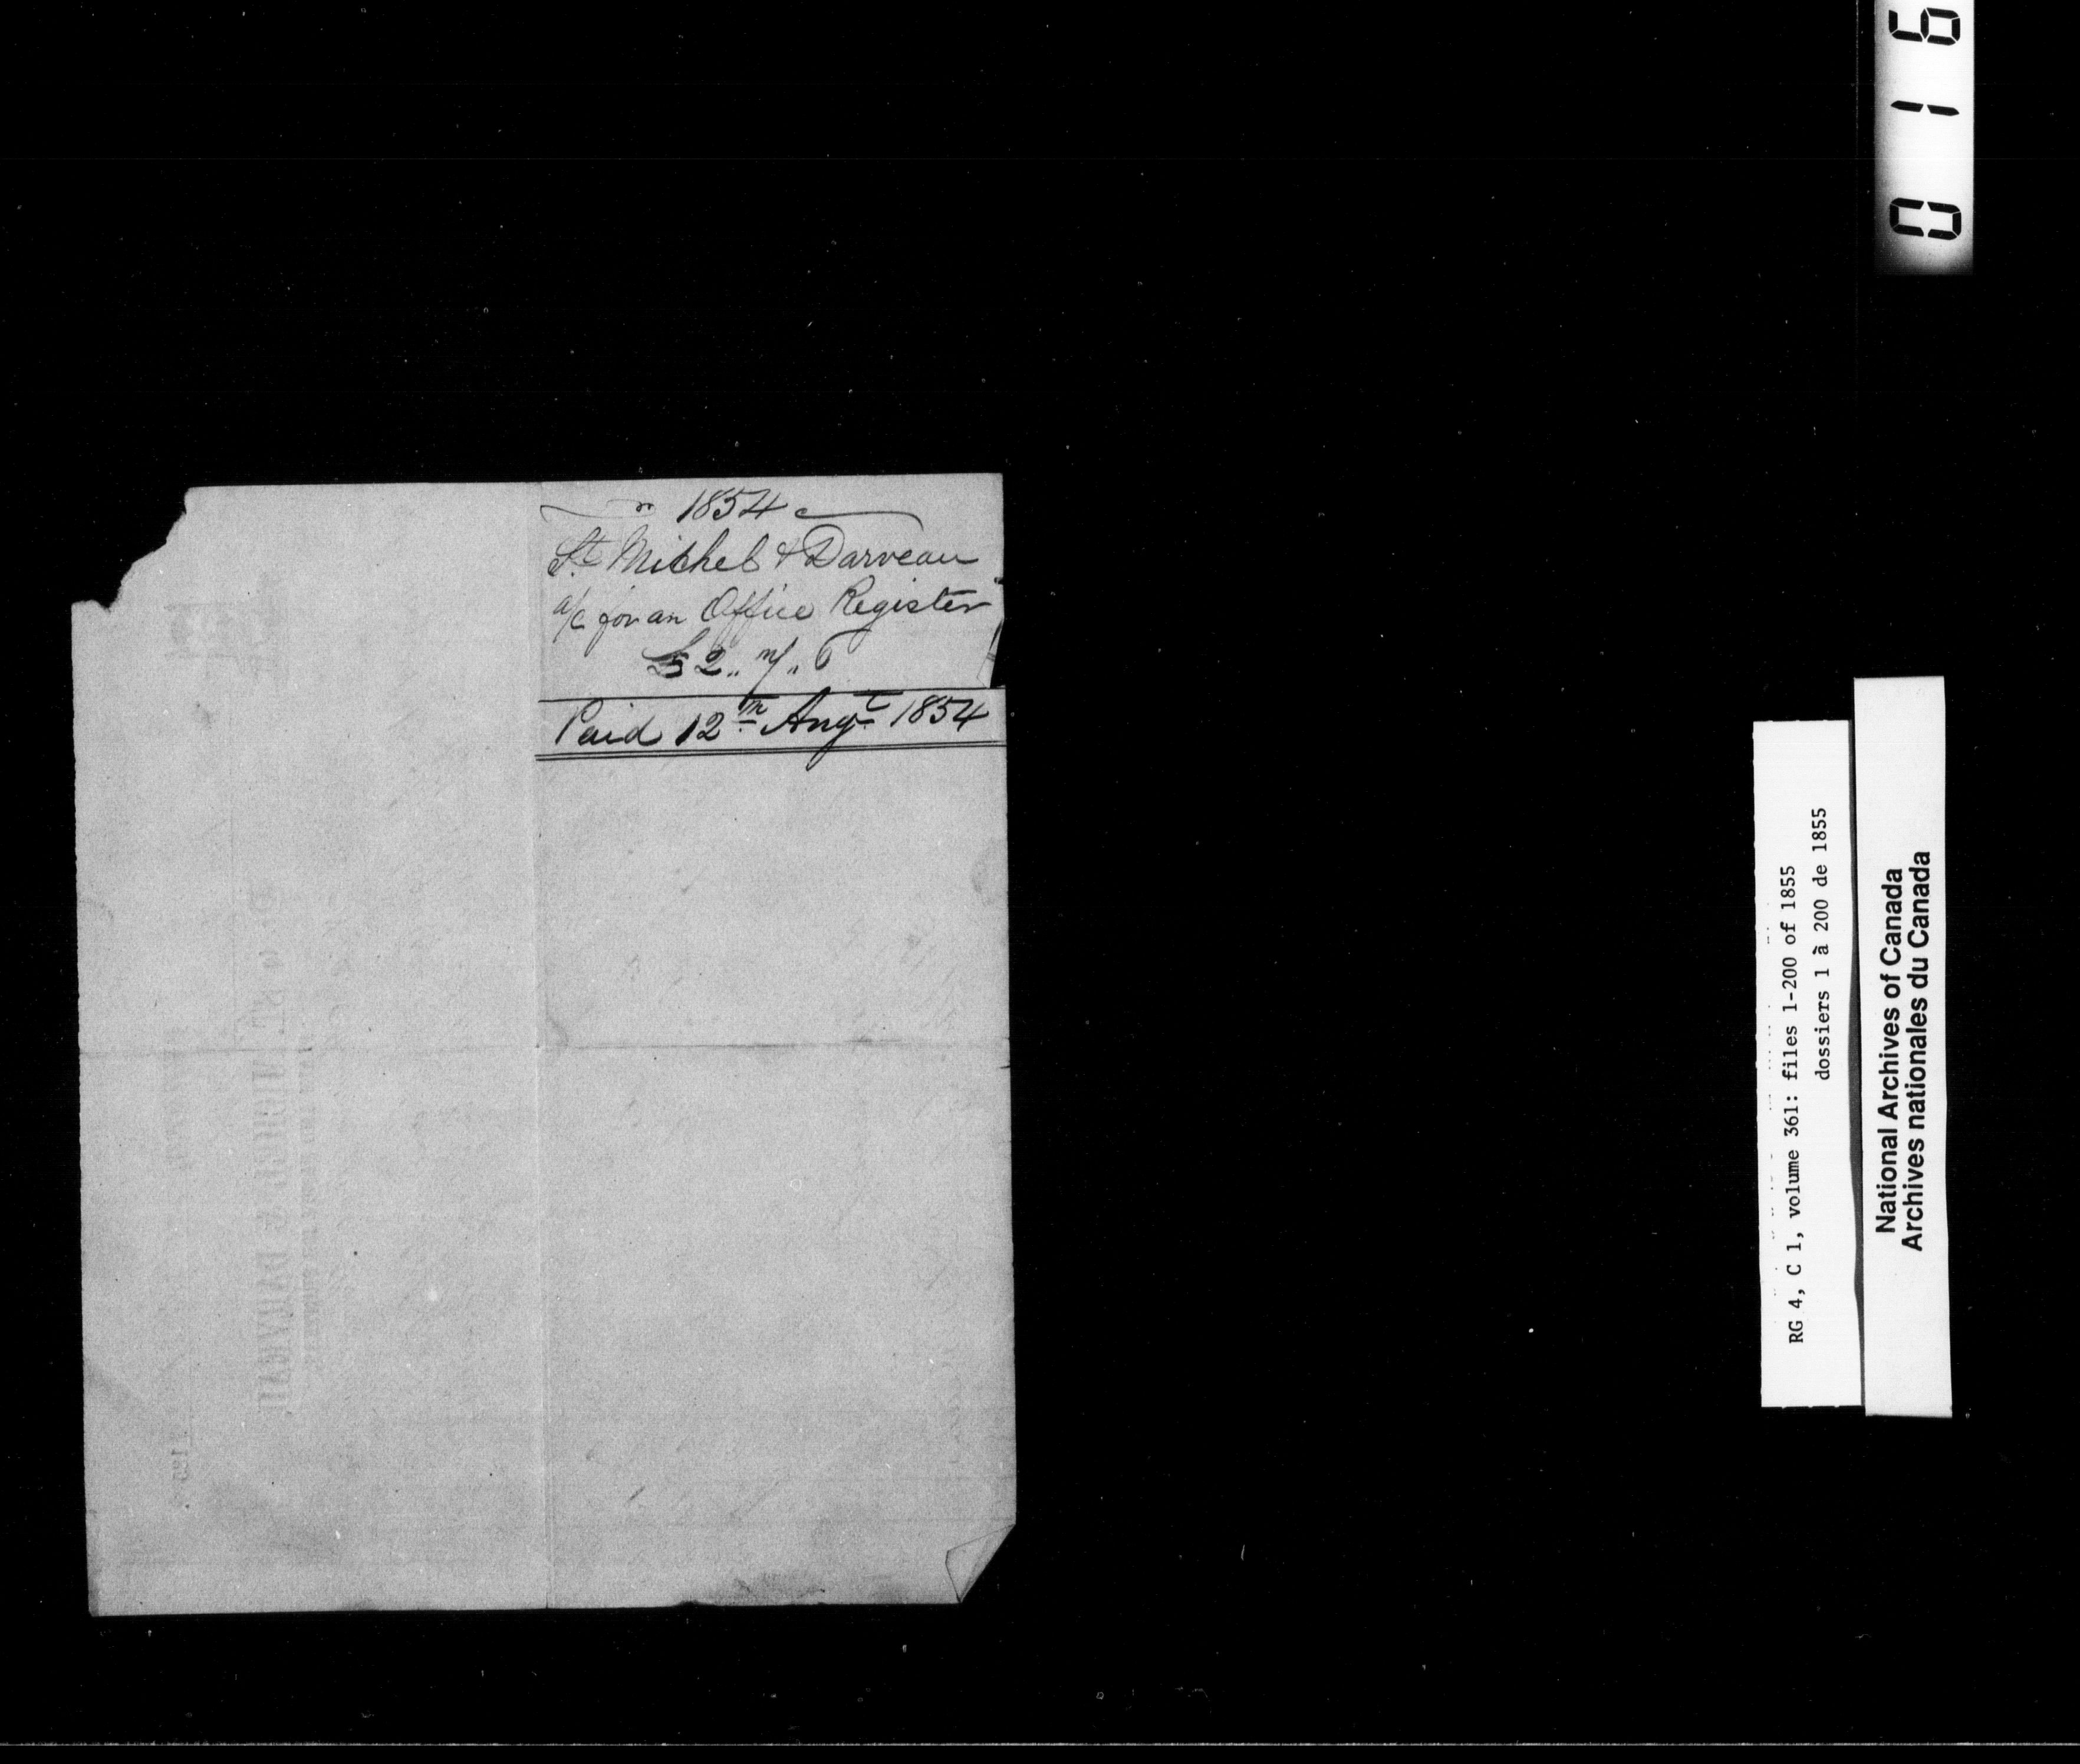 1854
St. Michel & Darveau
a/c for an Office Register
£2.. 7/.. 6
Paid 12th Augt 1854
RG 4, C 1, volume 361: files 1-200 of 1855
dossiers 1 à 200 de 1855
National Archives of Canada
Archives nationales du Canada
0 1 6